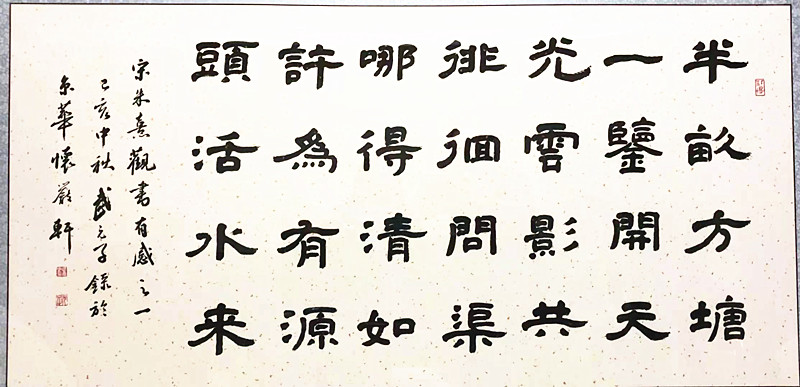 半畝方塘
一鑒開天
光雲影共
徘徊問渠
哪得清如
許為有源
頭活水来
宋朱熹觀書有感之一
己亥中秋武元子錄於
京華懷嚴軒